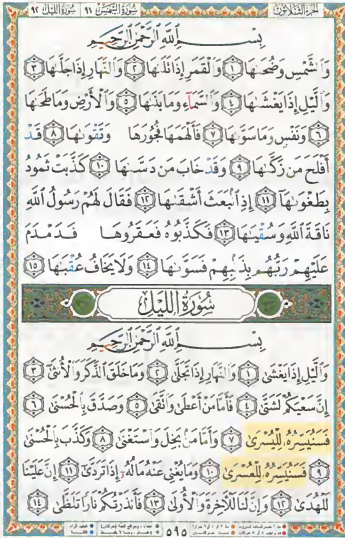 الجزء الثلاثون سورة الشمس ٩١ سورة الليل ٩٢
بِسْمِ ٱللَّهِ ٱلرَّحْمَٰنِ ٱلرَّحِيمِ
وَٱلشَّمْسِ وَضُحَىٰهَا ١ وَٱلْقَمَرِ إِذَا تَلَىٰهَا ٢ وَٱلنَّهَارِ إِذَا جَلَّىٰهَا ٣
وَٱلَّيْلِ إِذَا يَغْشَىٰهَا ٤ وَٱلسَّمَآءِ وَمَا بَنَىٰهَا ٥ وَٱلْأَرْضِ وَمَا طَحَىٰهَا
٦ وَنَفْسٍ وَمَا سَوَّىٰهَا ٧ فَأَلْهَمَهَا فُجُورَهَا وَتَقْوَىٰهَا ٨ قَدْ
أَفْلَحَ مَن زَكَّىٰهَا ٩ وَقَدْ خَابَ مَن دَسَّىٰهَا ١٠ كَذَّبَتْ ثَمُودُ
بِطَغْوَىٰهَآ ١١ إِذِ ٱنۢبَعَثَ أَشْقَىٰهَا ١٢ فَقَالَ لَهُمْ رَسُولُ ٱللَّهِ
نَاقَةَ ٱللَّهِ وَسُقْيَٰهَا ١٣ فَكَذَّبُوهُ فَعَقَرُوهَا فَدَمْدَمَ
عَلَيْهِمْ رَبُّهُم بِذَنۢبِهِمْ فَسَوَّىٰهَا ١٤ وَلَا يَخَافُ عُقْبَٰهَا ١٥
سُورَةُ اللَّيْلِ
بِسْمِ ٱللَّهِ ٱلرَّحْمَٰنِ ٱلرَّحِيمِ
وَٱلَّيْلِ إِذَا يَغْشَىٰ ١ وَٱلنَّهَارِ إِذَا تَجَلَّىٰ ٢ وَمَا خَلَقَ ٱلذَّكَرَ وَٱلْأُنثَىٰٓ ٣
إِنَّ سَعْيَكُمْ لَشَتَّىٰ ٤ فَأَمَّا مَنْ أَعْطَىٰ وَٱتَّقَىٰ ٥ وَصَدَّقَ بِٱلْحُسْنَىٰ ٦
فَسَنُيَسِّرُهُۥ لِلْيُسْرَىٰ ٧ وَأَمَّا مَنۢ بَخِلَ وَٱسْتَغْنَىٰ ٨ وَكَذَّبَ بِٱلْحُسْنَىٰ
٩ فَسَنُيَسِّرُهُۥ لِلْعُسْرَىٰ ١٠ وَمَا يُغْنِى عَنْهُ مَالُهُۥٓ إِذَا تَرَدَّىٰٓ ١١ إِنَّ عَلَيْنَا
لَلْهُدَىٰ ١٢ وَإِنَّ لَنَا لَلْءَاخِرَةَ وَٱلْأُولَىٰ ١٣ فَأَنذَرْتُكُمْ نَارًا تَلَظَّىٰ ١٤
٥٩٥